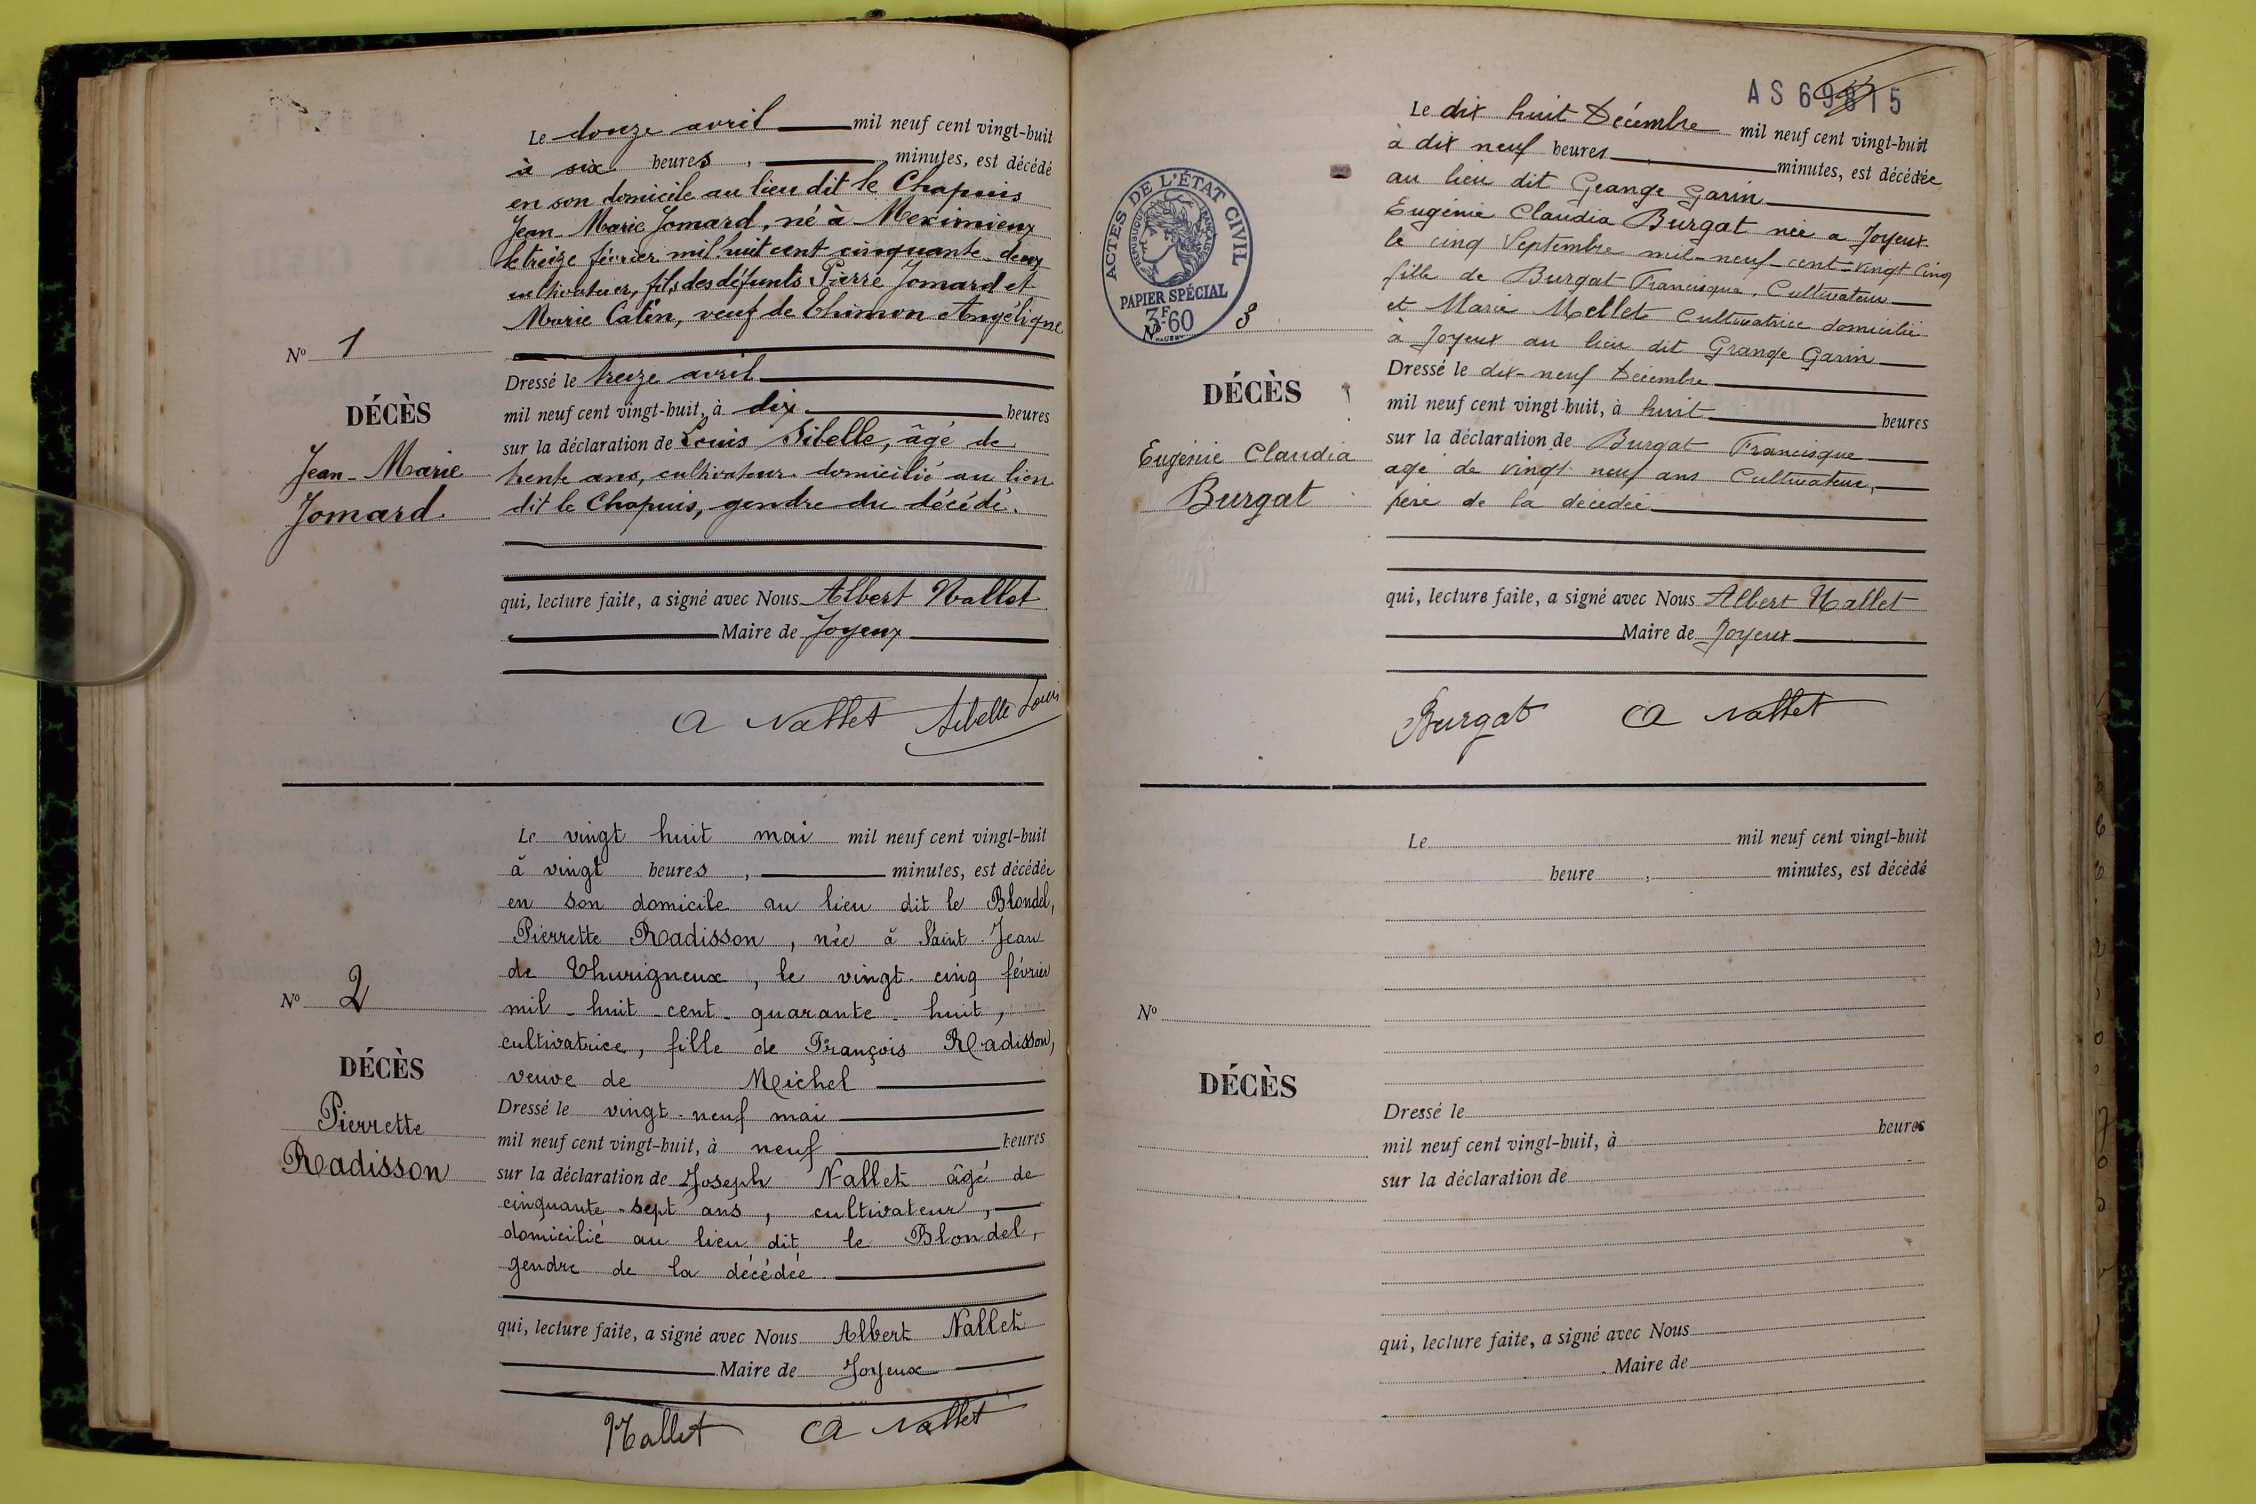 Le douze avril mil neuf cent vingt-huit
à six heures, minutes, est décédé
en son domicile au lieu dit le Chapuis
Jean Marie Jomard, né à Meximieux
le treize février mil huit cent cinquante deux
cultivateur, fils des défunts Pierre Jomard et
Marie Catin, veuf de Thimon Angélique
No 1
Dressé le treize avril
mil neuf cent vingt-huit, à dix heures
DÉCÈS
sur la déclaration de Louis Sibelle, âgé de
Jean-Marie
trente ans, cultivateur domicilié au lieu
Jomard.
dit le Chapuis, gendre du décédé.
qui, lecture faite, a signé avec Nous Albert Nallet
Maire de Joyeux
A Nallet Sibelle Louis
Le vingt huit mai mil neuf cent vingt-huit
à vingt heures, minutes, est décédée
en son domicile au lieu dit le Blondel,
Pierrette Radisson, née à Saint Jean
de Thurigneux, le vingt-cinq février
No 2
mil-huit-cent-quarante-huit,
cultivatrice, fille de François Radisson,
DÉCÈS
veuve de Michel
Pierrette
Dressé le vingt-neuf mai
mil neuf cent vingt-huit, à neuf heures
Radisson
sur la déclaration de Joseph Nallet âgé de
cinquante-sept ans, cultivateur,
domicilié au lieu dit le Blondel,
gendre de la décédée
qui, lecture faite, a signé avec Nous Albert Nallet
Maire de Joyeux
Nallet A Nallet
AS 69815
Le dix huit Décembre mil neuf cent vingt-huit
à dix neuf heures, minutes, est décédée
au lieu dit Grange Garin
Eugénie Claudia Burgat née a Joyeux
le cinq Septembre mil-neuf-cent-vingt cinq
fille de Burgat Francisque, Cultivateur
et Marie Mollet Cultivatrice domicilié
à Joyeux au lieu dit Grange Garin
ACTES DE L'ÉTAT CIVIL
RÉPUBLIQUE FRANÇAISE
PAPIER SPÉCIAL
3F60
No 3
Dressé le dix-neuf Décembre
DÉCÈS
mil neuf cent vingt-huit, à huit heures
sur la déclaration de Burgat Francisque
Eugénie Claudia
agé de vingt neuf ans Cultivateur,
Burgat
père de la décédée
qui, lecture faite, a signé avec Nous Albert Nallet
Maire de Joyeux
Burgat A Nallet
Le mil neuf cent vingt-huit
heure, minutes, est décédé
No
DÉCÈS
Dressé le
mil neuf cent vingt-huit, à heures
sur la déclaration de
qui, lecture faite, a signé avec Nous
Maire de